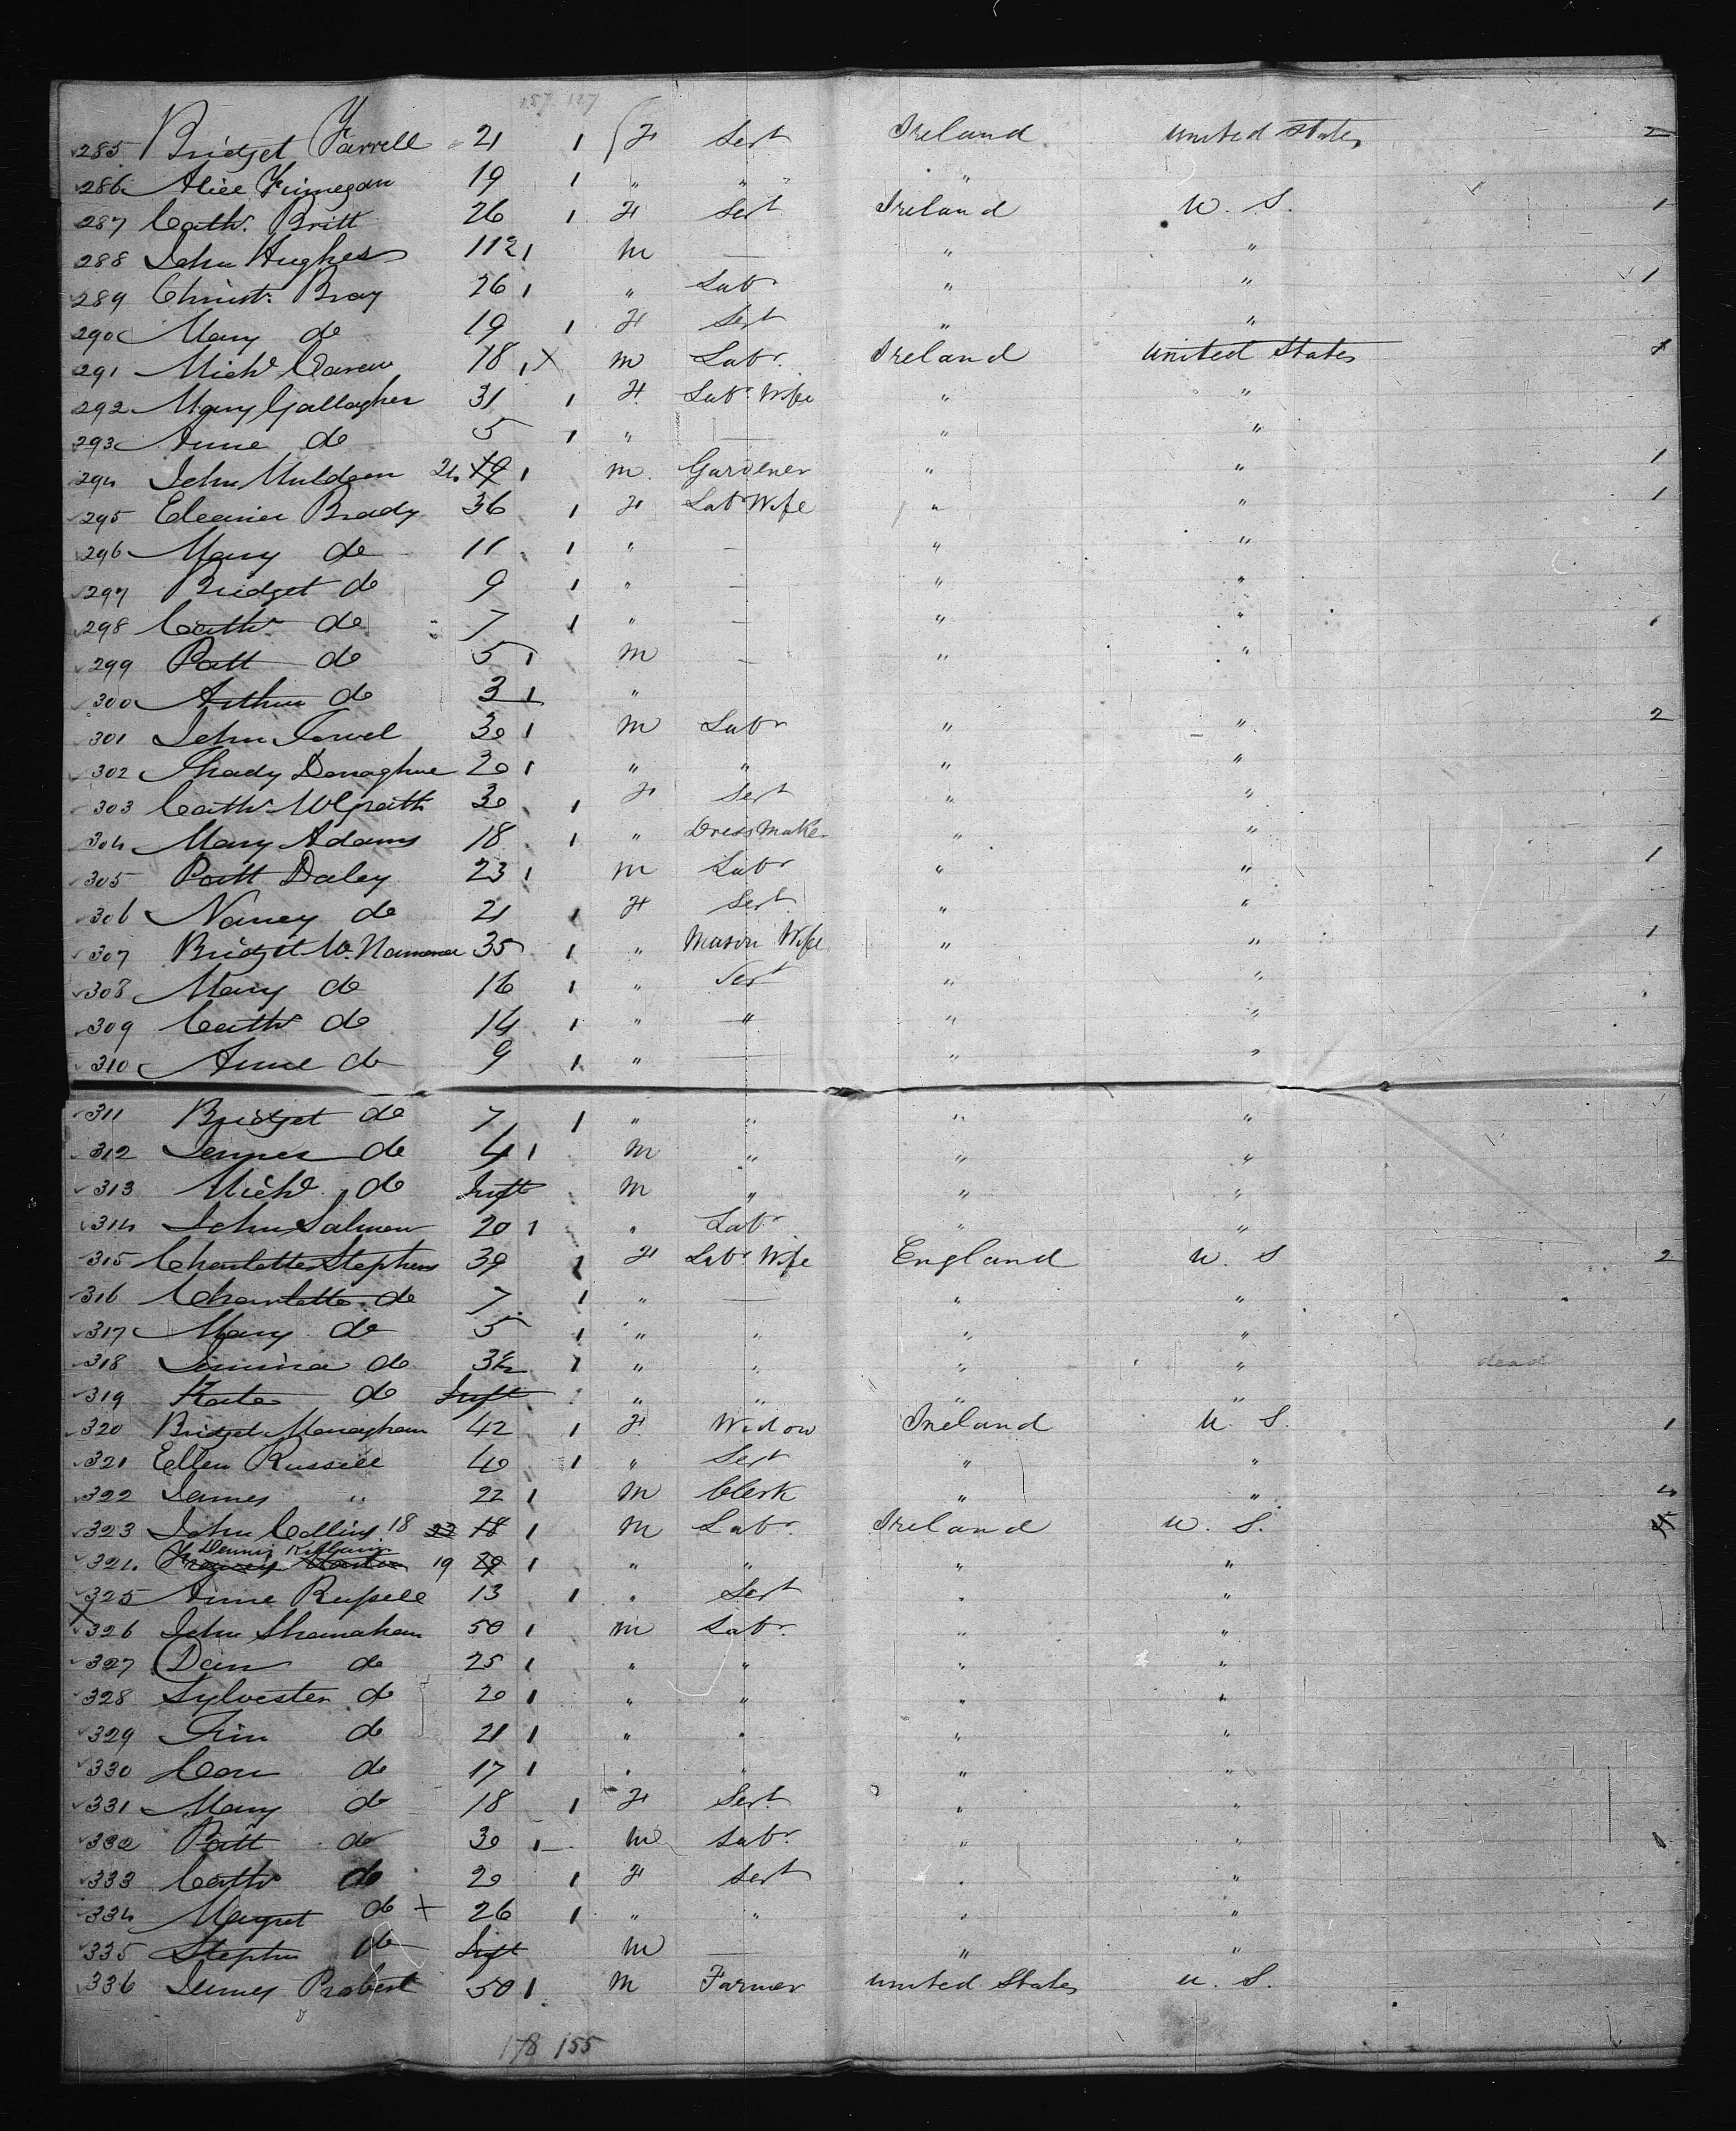 157 127
285 Bridget Farrell 21 1 F Sert Ireland United States 2
286 Alice Finnegan 19 1 " " " "
287 Cathr. Britt 26 1 F Sert Ireland U. S. 1
288 John Hughes 11 1 M — " "
289 Christr. Bray 26 1 " Labr " " 1
290 Mary do 19 1 F Sert " "
291 Michl Carew 18 1 X M Labr. Ireland United States 1
292 Mary Gallagher 31 1 F Labr. Wife " "
293 Anne do 5 1 " — " "
294 John Muldoon 24 19 1 M. Gardener " " 1
295 Eleanor Brady 36 1 F Labr Wife " " 1
296 Mary do 11 1 " — " "
297 Bridget do 9 1 " — " "
298 Cathr. do 7 1 " — " "
299 Patt do 5 1 M — " "
300 Arthur do 3 1 "
301 John 30 1 M Labr " " 2
302 Thady Donaghue 20 1 " " " "
303 Cathr. McGrath 30 1 F Sert " "
304 Mary Adams 18 1 " Dress Maker " "
305 Patt Daley 23 1 M Labr " " 1
306 Nancy do 21 1 F Sert " "
307 Bridget Mc. Namara 35 1 " Mason Wife " " 1
308 Mary do 16 1 " Sert " "
309 Cathr do 14 1 " " " "
310 Anne do 9 1 " — " "
311 Bridget do 7 1 " " " "
312 James do 4 1 M " " "
313 Michl do Inft M " " "
314 John Salmon 20 1 " Labr " "
315 Charlotte Stephens 39 1 F Labr. Wife England U. S 2
316 Charlotte do 7 1 " — " "
317 Mary do 5 1 " " " "
318 Jemima do 3½ 1 " " " " dead
319 Kate do Inft " " " "
320 Bridget Monaghan 42 1 F Widow Ireland U. S. 1
321 Ellen Russell 40 1 " Sert " "
322 James " 22 1 M Clerk " "
323 John Collins 18 23 18 1 M Labr. Ireland U. S.
Dennis
324 19 20 1 " " " "
325 Anne Russell 13 1 " Sert " "
X 326 John Shanahan 50 1 M Labr. " "
327 Dan do 25 1 " " " "
328 Sylvester do 20 1 " " " "
329 Tim do 21 1 " " " "
330 Con do 17 1 " " " "
331 Mary do 18 1 F Sert. " "
332 Patt do 30 1 M Labr. " " 1
333 Cathr do 20 1 F Sert " "
334 Margret do + 26 1 " " " "
335 Stephen do Inft M — " "
336 James Probert 50 1 M Farmer United States U. S.
178 155